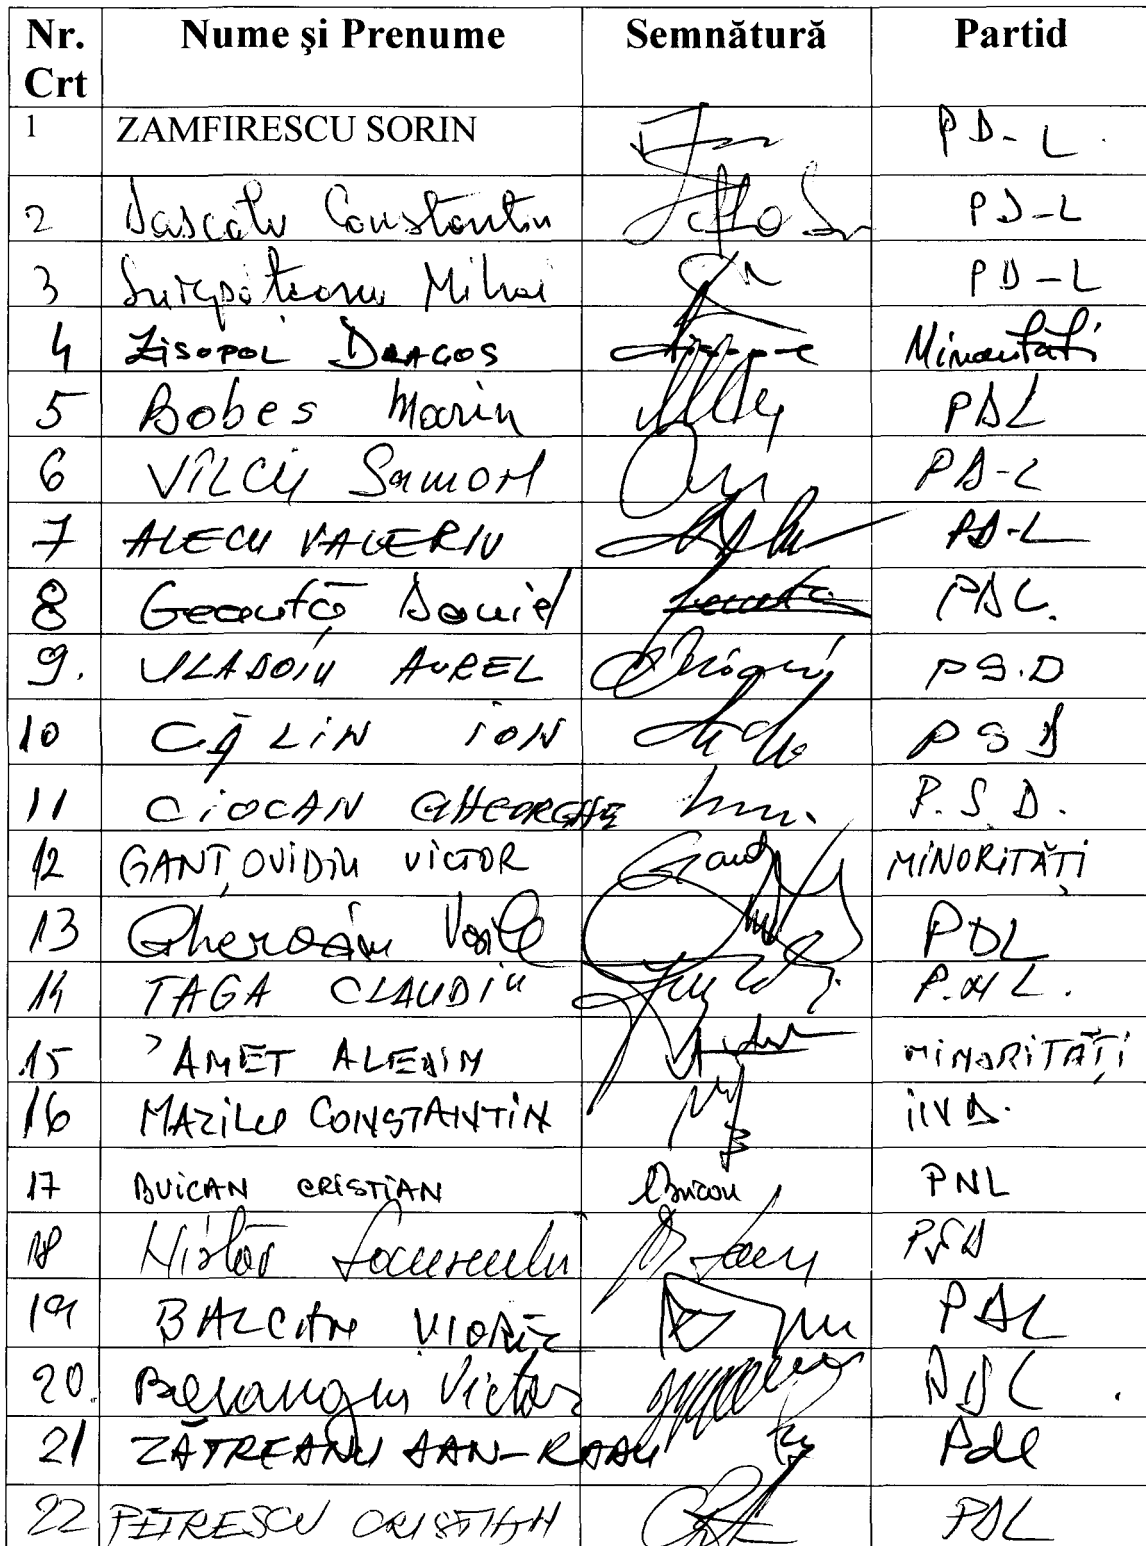 Nr. Crt Nume şi Prenume Semnătură Partid
1 ZAMFIRESCU SORIN PD-L.
2 Dascălu Constantin PD-L
3 Surupăceanu Mihai PD-L
4 Zisopol Dragos Minoritati
5 Bobeș Marin PDL
6 VÎLCU Samoil PD-L
7 ALECU VALERIU PD-L
8 Geantă Daniel PDL.
9. VLADOIU AUREL PS.D
10 CĂLIN ION PSD
11 CIOCAN GHEORGHE P.S.D.
12 GANȚ OVIDIU VICTOR Gant MINORITĂȚI
13 Gherasim Vasile PDL
14 TAGA CLAUDIU P.N.L.
15 AMET ALEDIN MINORITĂȚI
16 MAZILU CONSTANTIN IND.
17 BUICAN CRISTIAN Buican PNL
18 Nistor Laurențiu PSD
19 BALCAN VIOREL PDL
20. Boiangiu Victor PDL.
21 ZĂTREANU DAN-RADU Pdl
22 PETRESCU CRISTIAN PDL